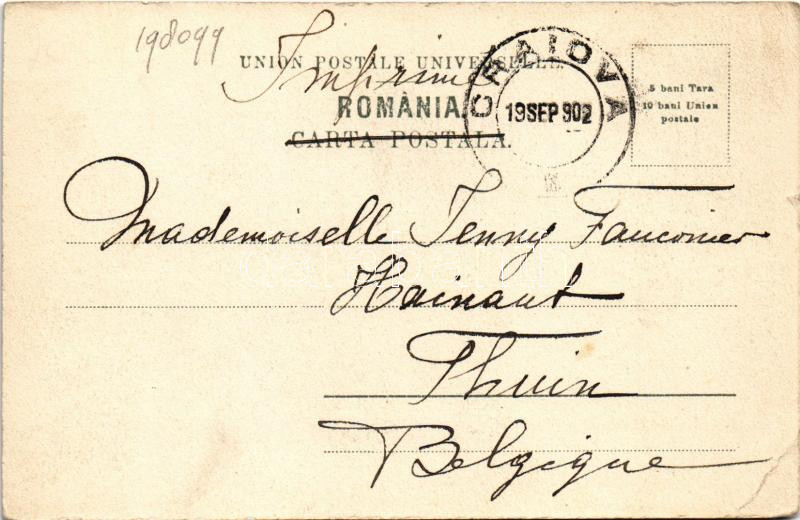 198099
UNION POSTALE UNIVERSELLE.
Imprimé
ROMÂNIA
CARTA POSTALA.
CRAIOVA
19 SEP 902
5 bani Tara
10 bani Union
postale
Mademoiselle Jenny Fauconier
Hainaut
Thuin
Belgique